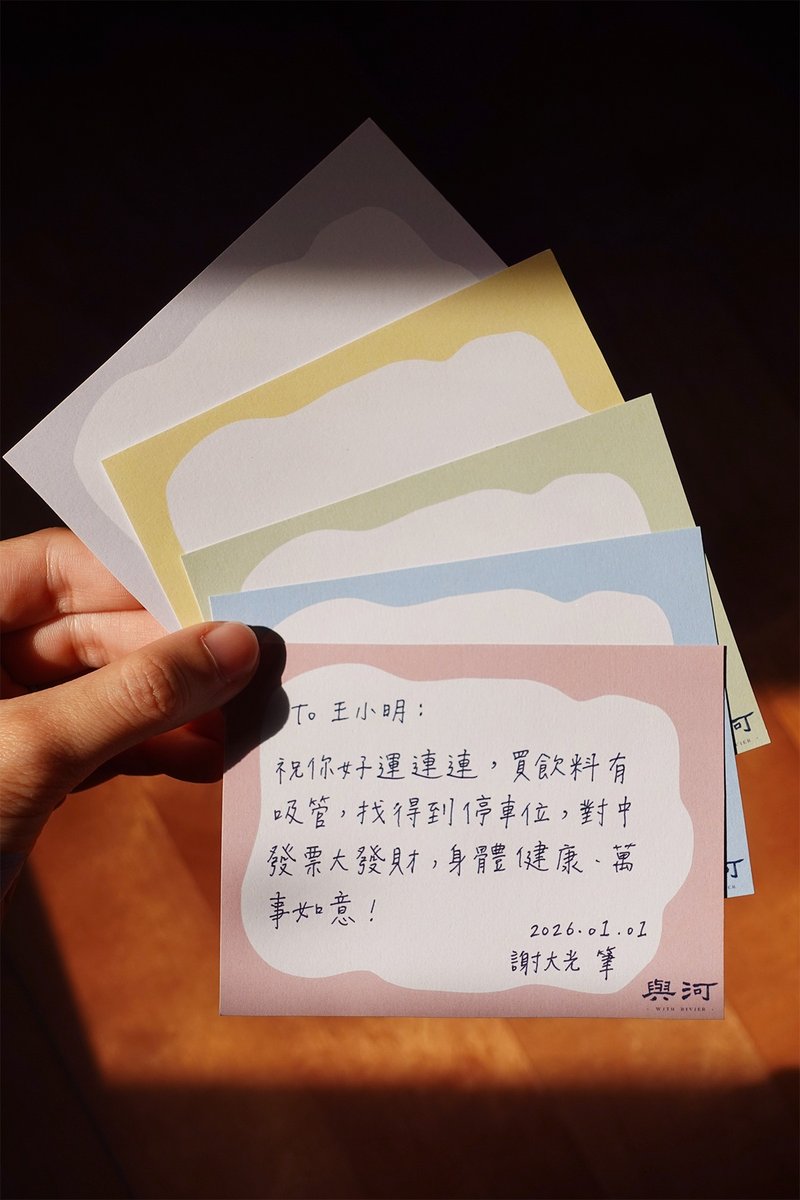 To 王小明：
祝你好運連連，買飲料有
吸管，找得到停車位，對中
發票大發財，身體健康、萬
事如意！
2026.01.01
謝大光 筆
與河
- WITH RIVIER -
河
河